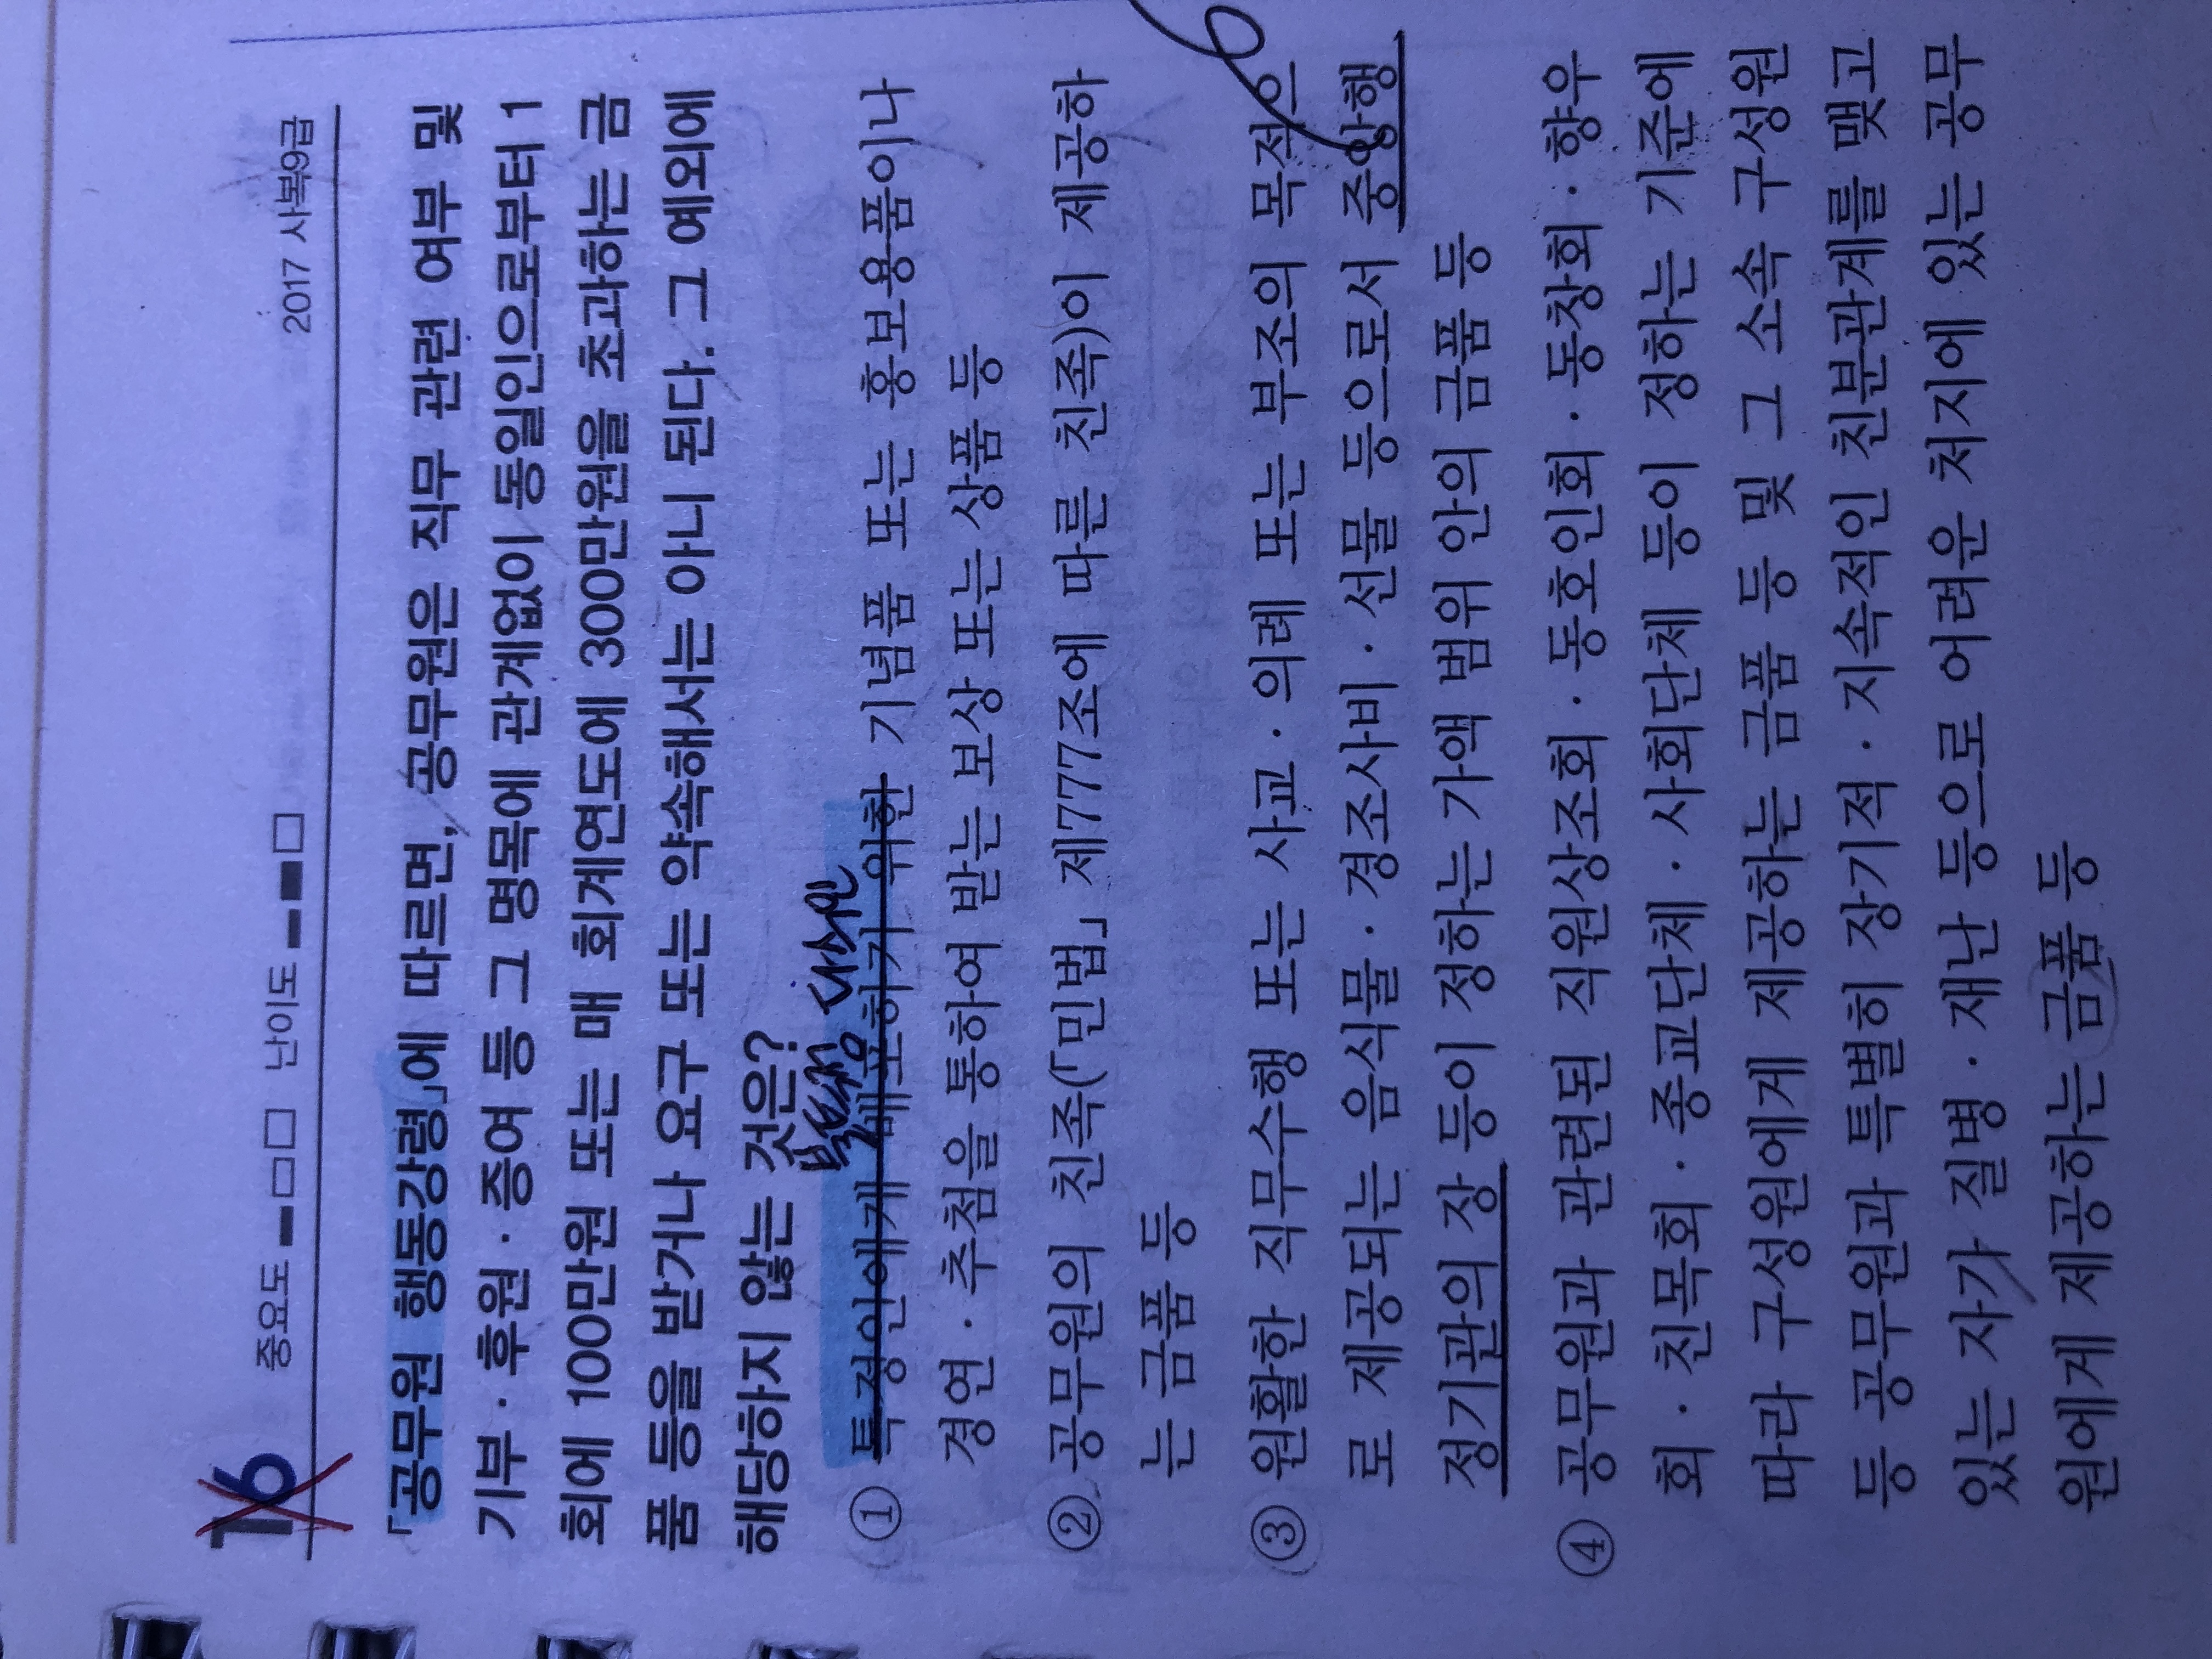 16 중요도 ■□□ 난이도 ■■□ 2017 사복9급
「공무원 행동강령」에 따르면, 공무원은 직무 관련 여부 및
기부·후원·증여 등 그 명목에 관계없이 동일인으로부터 1
회에 100만원 또는 매 회계연도에 300만원을 초과하는 금
품 등을 받거나 요구 또는 약속해서는 아니 된다. 그 예외에
해당하지 않는 것은?
불특정 다수인
① 특정인에게 배포하기 위한 기념품 또는 홍보용품이나
경연·추첨을 통하여 받는 보상 또는 상품 등
② 공무원의 친족(「민법」 제777조에 따른 친족)이 제공하
는 금품 등
③ 원활한 직무수행 또는 사교·의례 또는 부조의 목적으
로 제공되는 음식물·경조사비·선물 등으로서 중앙행
정기관의 장 등이 정하는 가액 범위 안의 금품 등
④ 공무원과 관련된 직원상조회·동호인회·동창회·향우
회·친목회·종교단체·사회단체 등이 정하는 기준에
따라 구성원에게 제공하는 금품 등 및 그 소속 구성원
등 공무원과 특별히 장기적·지속적인 친분관계를 맺고
있는 자가 질병·재난 등으로 어려운 처지에 있는 공무
원에게 제공하는 금품 등